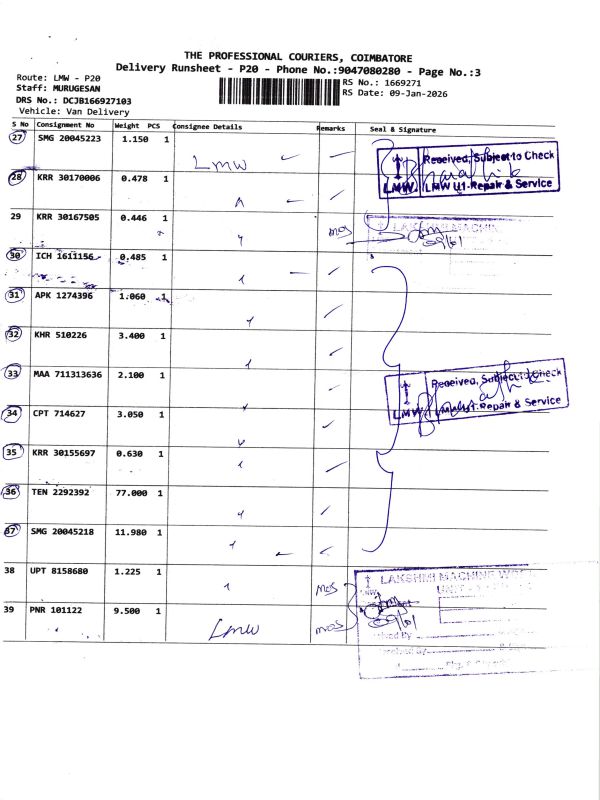 THE PROFESSIONAL COURIERS, COIMBATORE
Delivery Runsheet - P20 - Phone No.:9047080280 - Page No.:3
Route: LMW - P20
Staff: MURUGESAN
DRS No.: DCJB166927103
Vehicle: Van Delivery
RS No.: 1669271
RS Date: 09-Jan-2026
S No Consignment No Weight PCS Consignee Details Remarks Seal & Signature
27 SMG 20045223 1.150 1 LMW
Received, Subject to Check
LMW U1-Repair & Service
28 KRR 30170006 0.478 1
29 KRR 30167505 0.446 1 MOS
LAKSHMI MACHIN
30 ICH 1611156 0.485 1
31 APK 1274396 1.060 1
32 KHR 510226 3.400 1
33 MAA 711313636 2.100 1
Received, Subject to Check
LMW U1-Repair & Service
34 CPT 714627 3.050 1
35 KRR 30155697 0.630 1
36 TEN 2292392 77.000 1
37 SMG 20045218 11.980 1
38 UPT 8158680 1.225 1 MOS
LAKSHMI MACHINE
39 PNR 101122 9.500 1 LMW MOS